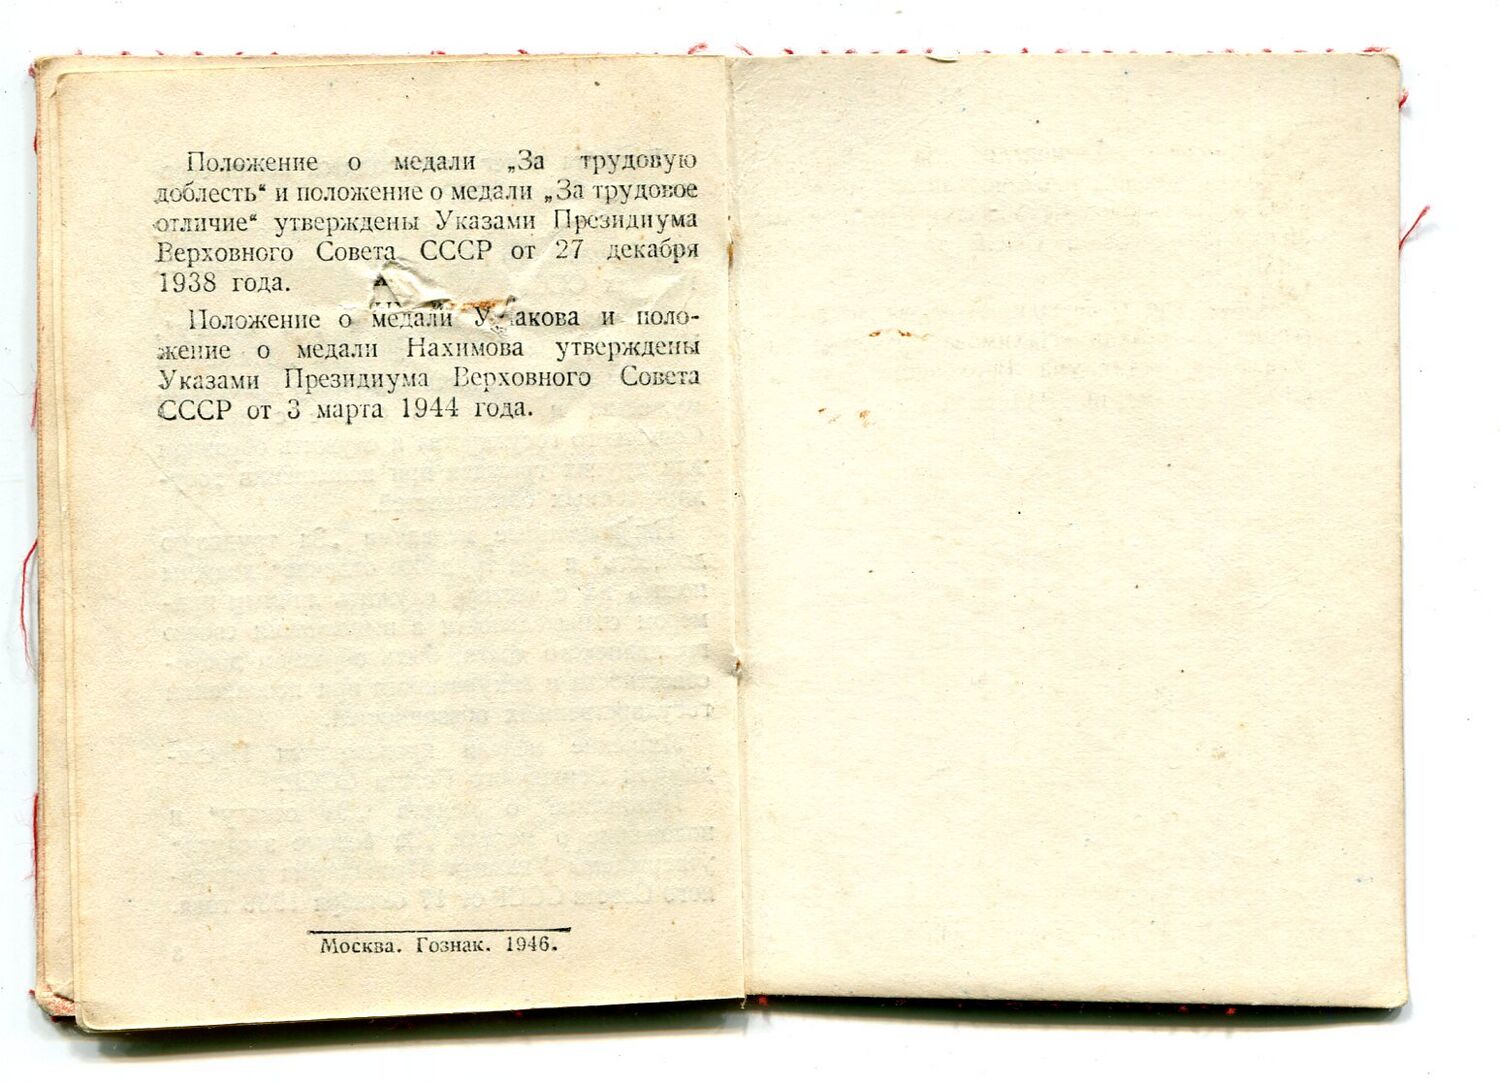 Положение о медали „За трудовую
доблесть“ и положение о медали „За трудовое
отличие“ утверждены Указами Президиума
Верховного Совета СССР от 27 декабря
1938 года.
Положение о медали Ушакова и поло-
жение о медали Нахимова утверждены
Указами Президиума Верховного Совета
СССР от 3 марта 1944 года.
Москва. Гознак. 1946.